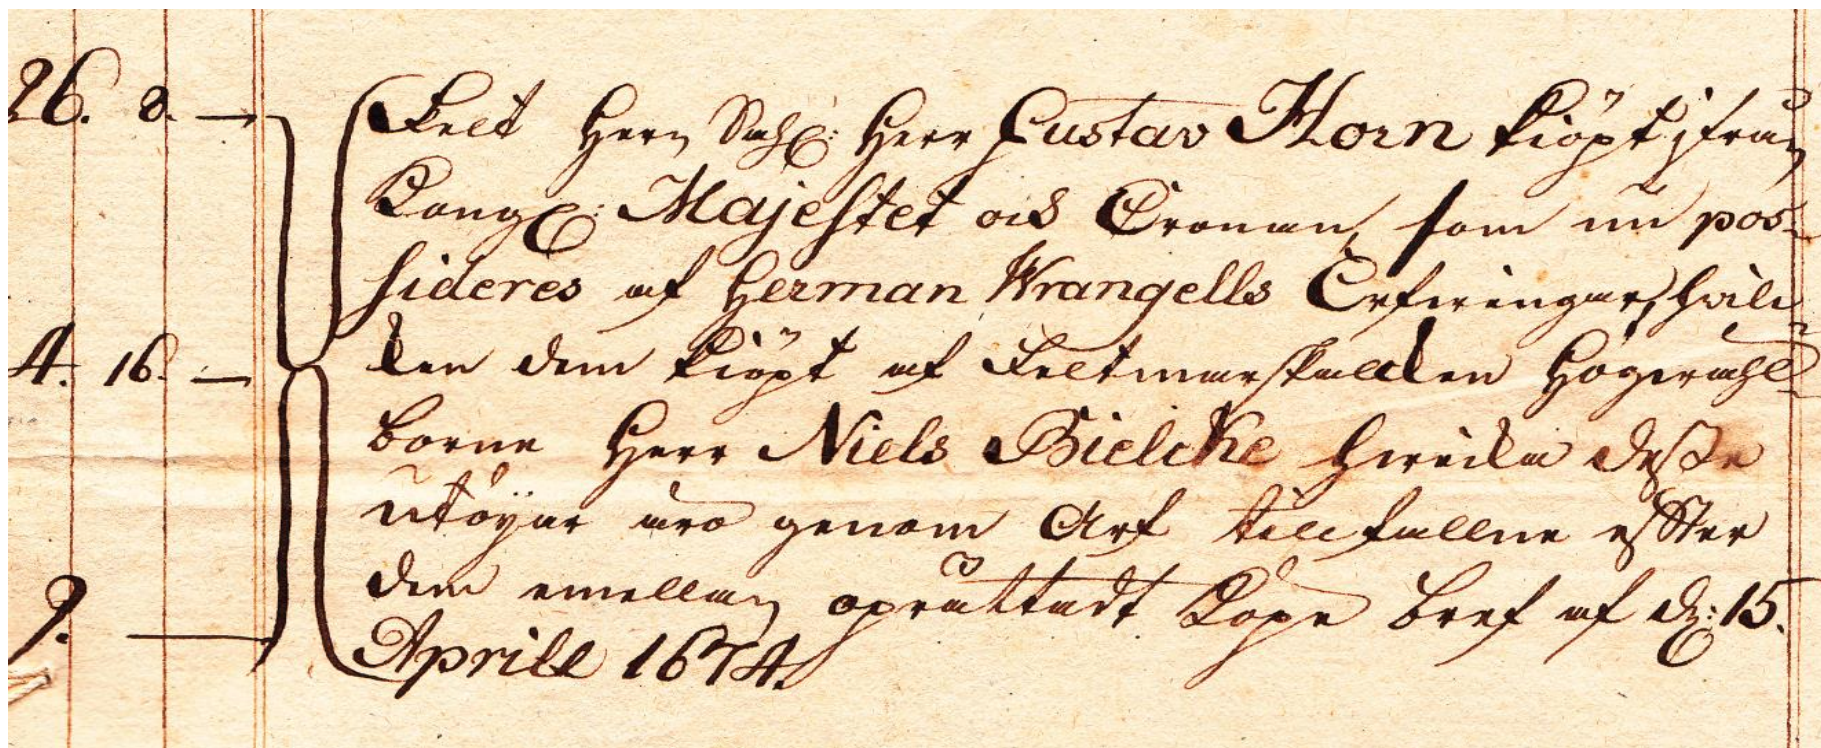 26. 8. — Felt Herrn Sahl: Herr Gustav Horn kiöpt ifrån
Kongl: Majestet och Cronan, som nu pos-
sideres af Herman Wrangells Erfwingar, hvil-
4. 16. — ken dem kiöpt af Feltmarskalcken Högwähl-
borne Herr Niels Bielcke hwicka desse
utöyar äro genom Arf tillfallne effter
9. — dem emellan oprättadt Köpe bref af d: 15.
Aprill 1674.